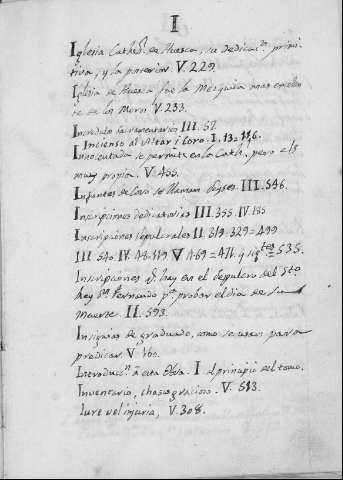 I
Iglesia Cathedl. de Huesca, su dedicacn. primi-
tiva, y la posterior. V. 229.
Iglesia de Huesca fue la Mezquita mas excelen-
te de los Moros V. 233.
Incredulo sacramentario III. 57.
Incienso al Altar i Coro. I. 13=156.
Innocentada se permite en la Cathl. pero es
muy propia. V. 455.
Infantes de Coro se llaman Seyses. III. 546.
Inscripciones dedicatorias III. 355. IV. 185
Inscripciones sepulcrales II. 319=329=499
III. 540 IV. 48. 119 V 469=471. y sigtes = 535.
Inscripciones q. hay en el sepulcro del Sto.
Rey Sn. Fernando pa. probar el dia de su
muerte II. 593.
Insignias de graduado, como se usan para
predicar. V. 160.
Introduccn. á esta Obra. I. al principio del tomo.
Inventario, chasco gracioso. V. 513.
Iure vel injuria, V. 308.